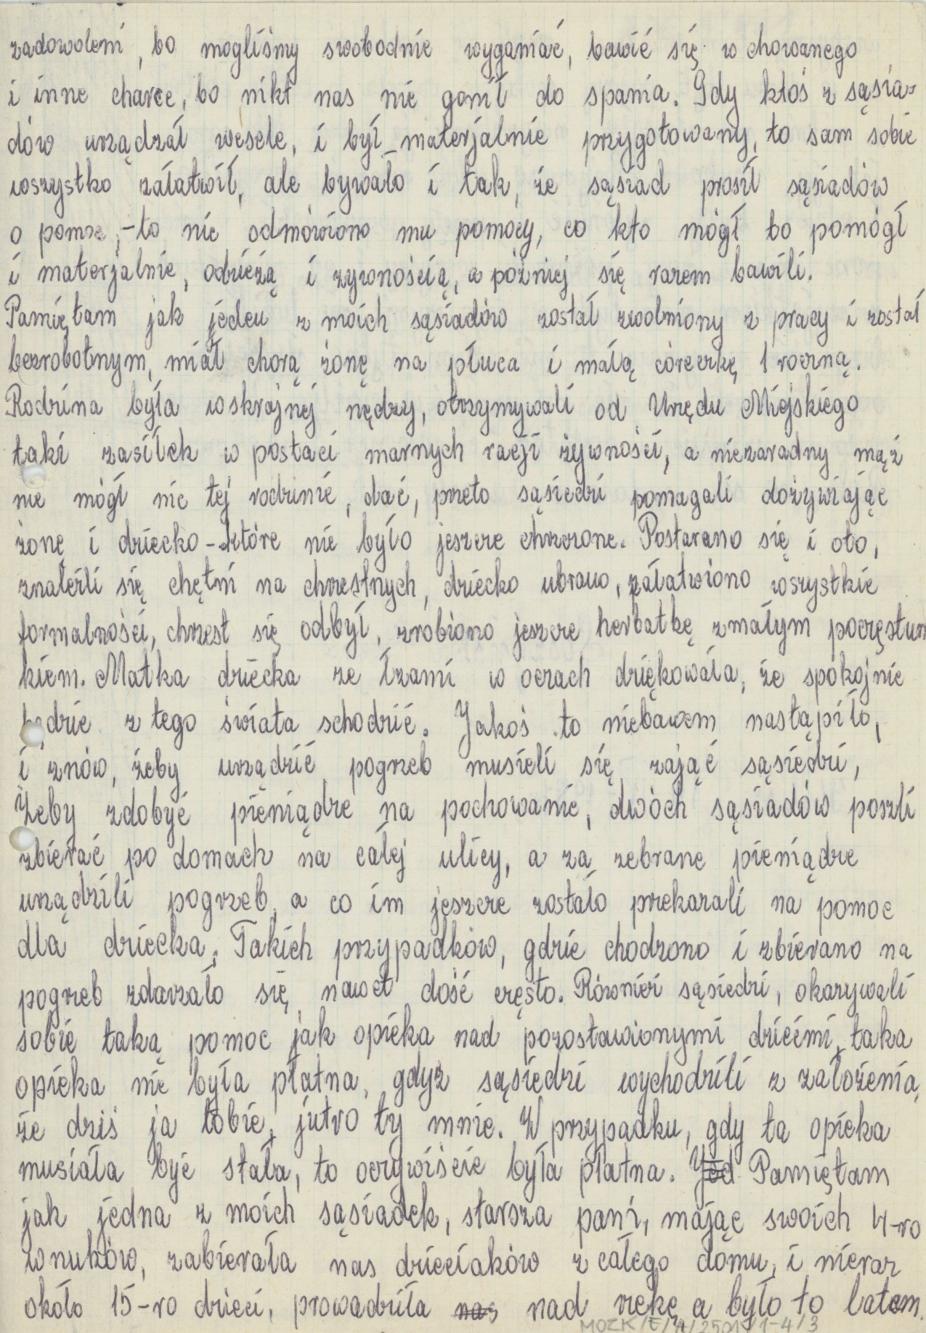 zadowoleni, bo mogliśmy swobodnie wyganiać, bawić się w chowanego
i inne charce, bo nikt nas nie gonił do spania. Gdy ktoś z sąsia-
dów urządzał wesele, i był materjalnie przygotowany, to sam sobie
wszystko załatwił, ale bywało i tak, że sąsiad prosił sąsiadów
o pomoc, -to nie odmówiono mu pomocy, co kto mógł to pomógł
i materjalnie, odzieżą i żywnością, a później się razem bawili.
Pamiętam jak jeden z moich sąsiadów został zwolniony z pracy i został
bezrobotnym, miał chorą żonę na płuca i małą córeczkę, 1 roczną.
Rodzina była wskrajnej nędzy, otrzymywali od Urzędu Miejskiego
taki zasiłek w postaci marnych racji żywności, a niezaradny mąż
nie mógł nic tej rodzinie, dać, przeto sąsiedzi pomagali dożywiając
żonę i dziecko-które nie było jeszcze chrzczone. Postarano się i oto,
znaleźli się chętni na chrzestnych, dziecko ubrano, załatwiono wszystkie
formalności, chrzest się odbył, zrobiono jeszcze herbatkę z małym poczęstun
kiem. Matka dziecka ze łzami w oczach dziękowała, że spokojnie
będzie z tego świata schodzić. Jakoś to niebawem nastąpiło,
i znów, żeby urządzić pogrzeb musieli się zająć sąsiedzi,
Żeby zdobyć pieniądze na pochowanie, dwóch sąsiadów poszli
zbierać po domach na całej ulicy, a za zebrane pieniądze
urządzili pogrzeb, a co im jeszcze zostało przekazali na pomoc
dla dziecka. Takich przypadków, gdzie chodzono i zbierano na
pogrzeb zdarzało się nawet dość często. Również sąsiedzi, okazywali
sobie taką pomoc jak opieka nad pozostawionymi dziećmi, taka
opieka nie była płatna, gdyż sąsiedzi wychodzili z założenia,
że dziś ja tobie, jutro ty mnie. W przypadku, gdy ta opieka
musiała być stała, to oczywiście była płatna. Pamiętam
jak jedna z moich sąsiadek, starsza pani, mając swoich 4-ro
wnuków, zabierała nas dzieciaków z całego domu, i nieraz
około 15-ro dzieci, prowadziła nas nad rzekę a było to latem.
MOZK/E/A/2501/1-4/3